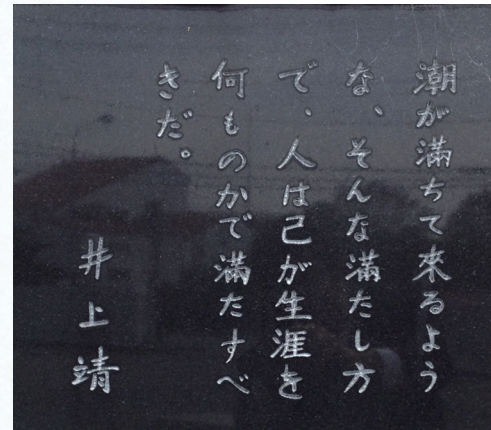 潮が満ちて來るよう
な、そんな満たし方
で、人は己が生涯を
何ものかで満たすべ
きだ。
井上靖